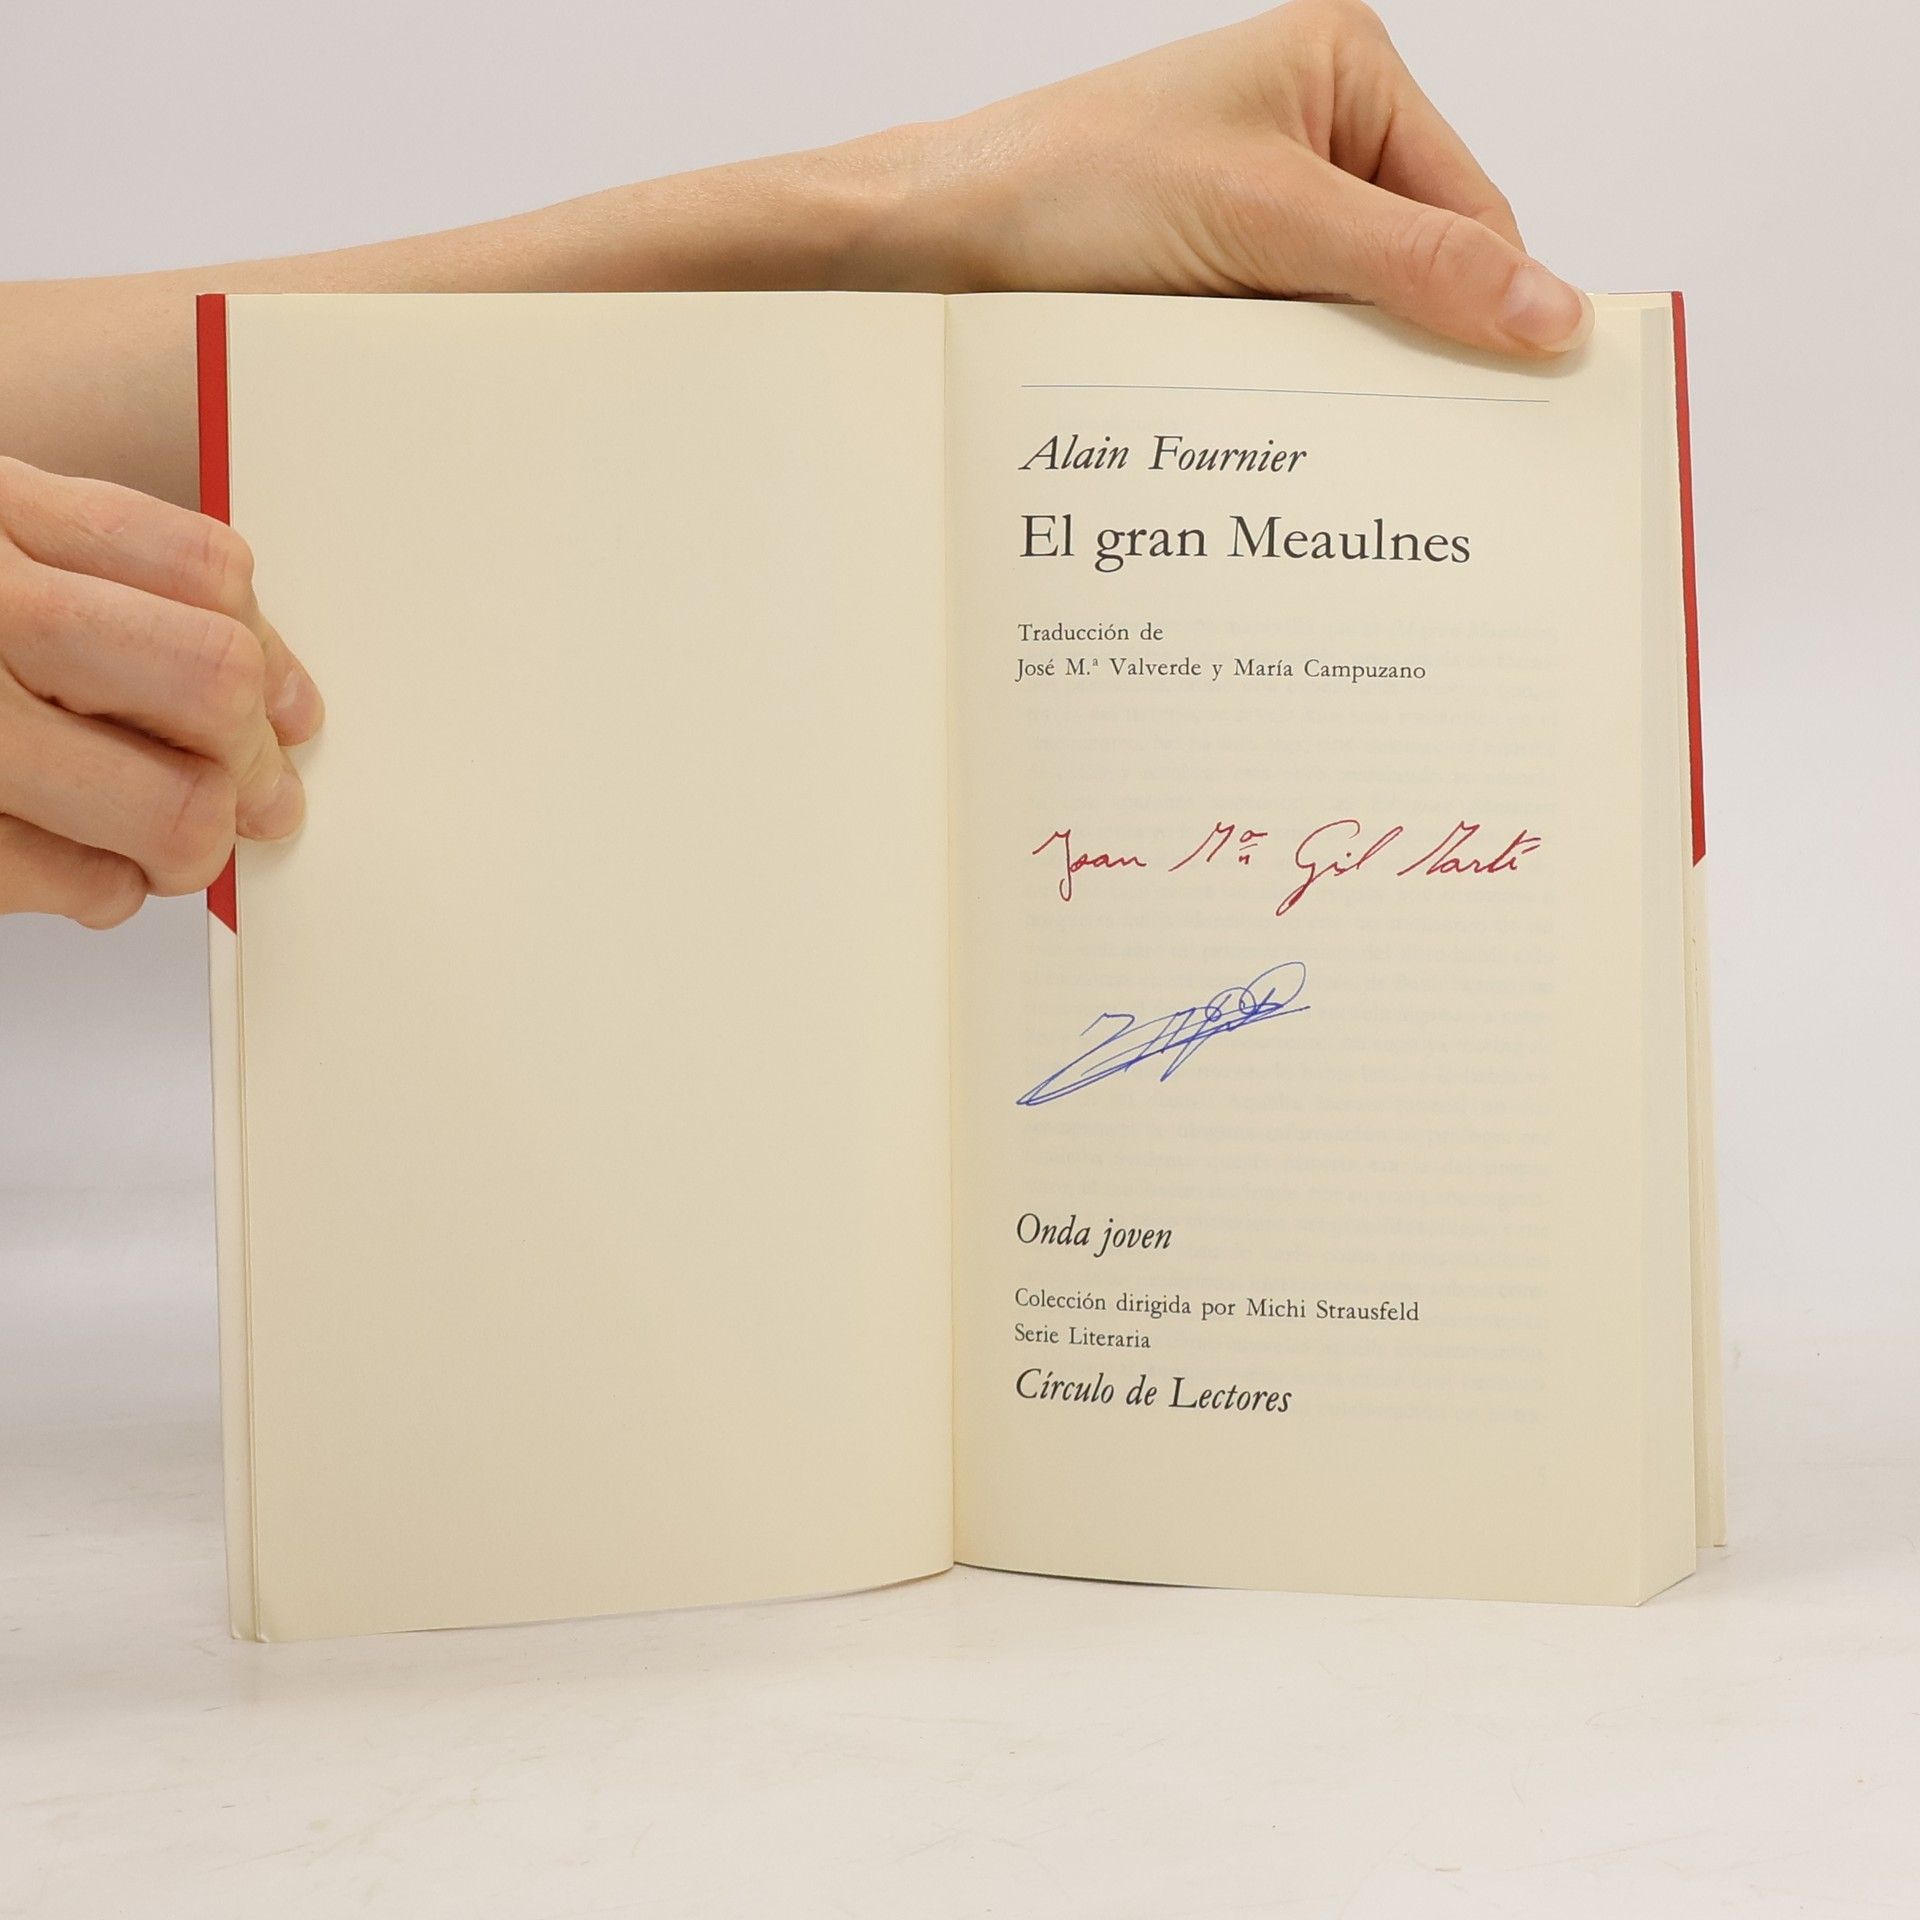 Alain Fournier
El gran Meaulnes
Traducción de
José M.ª Valverde y María Campuzano
Joan Mª Gil Martí
Onda joven
Colección dirigida por Michi Strausfeld
Serie Literaria
Círculo de Lectores